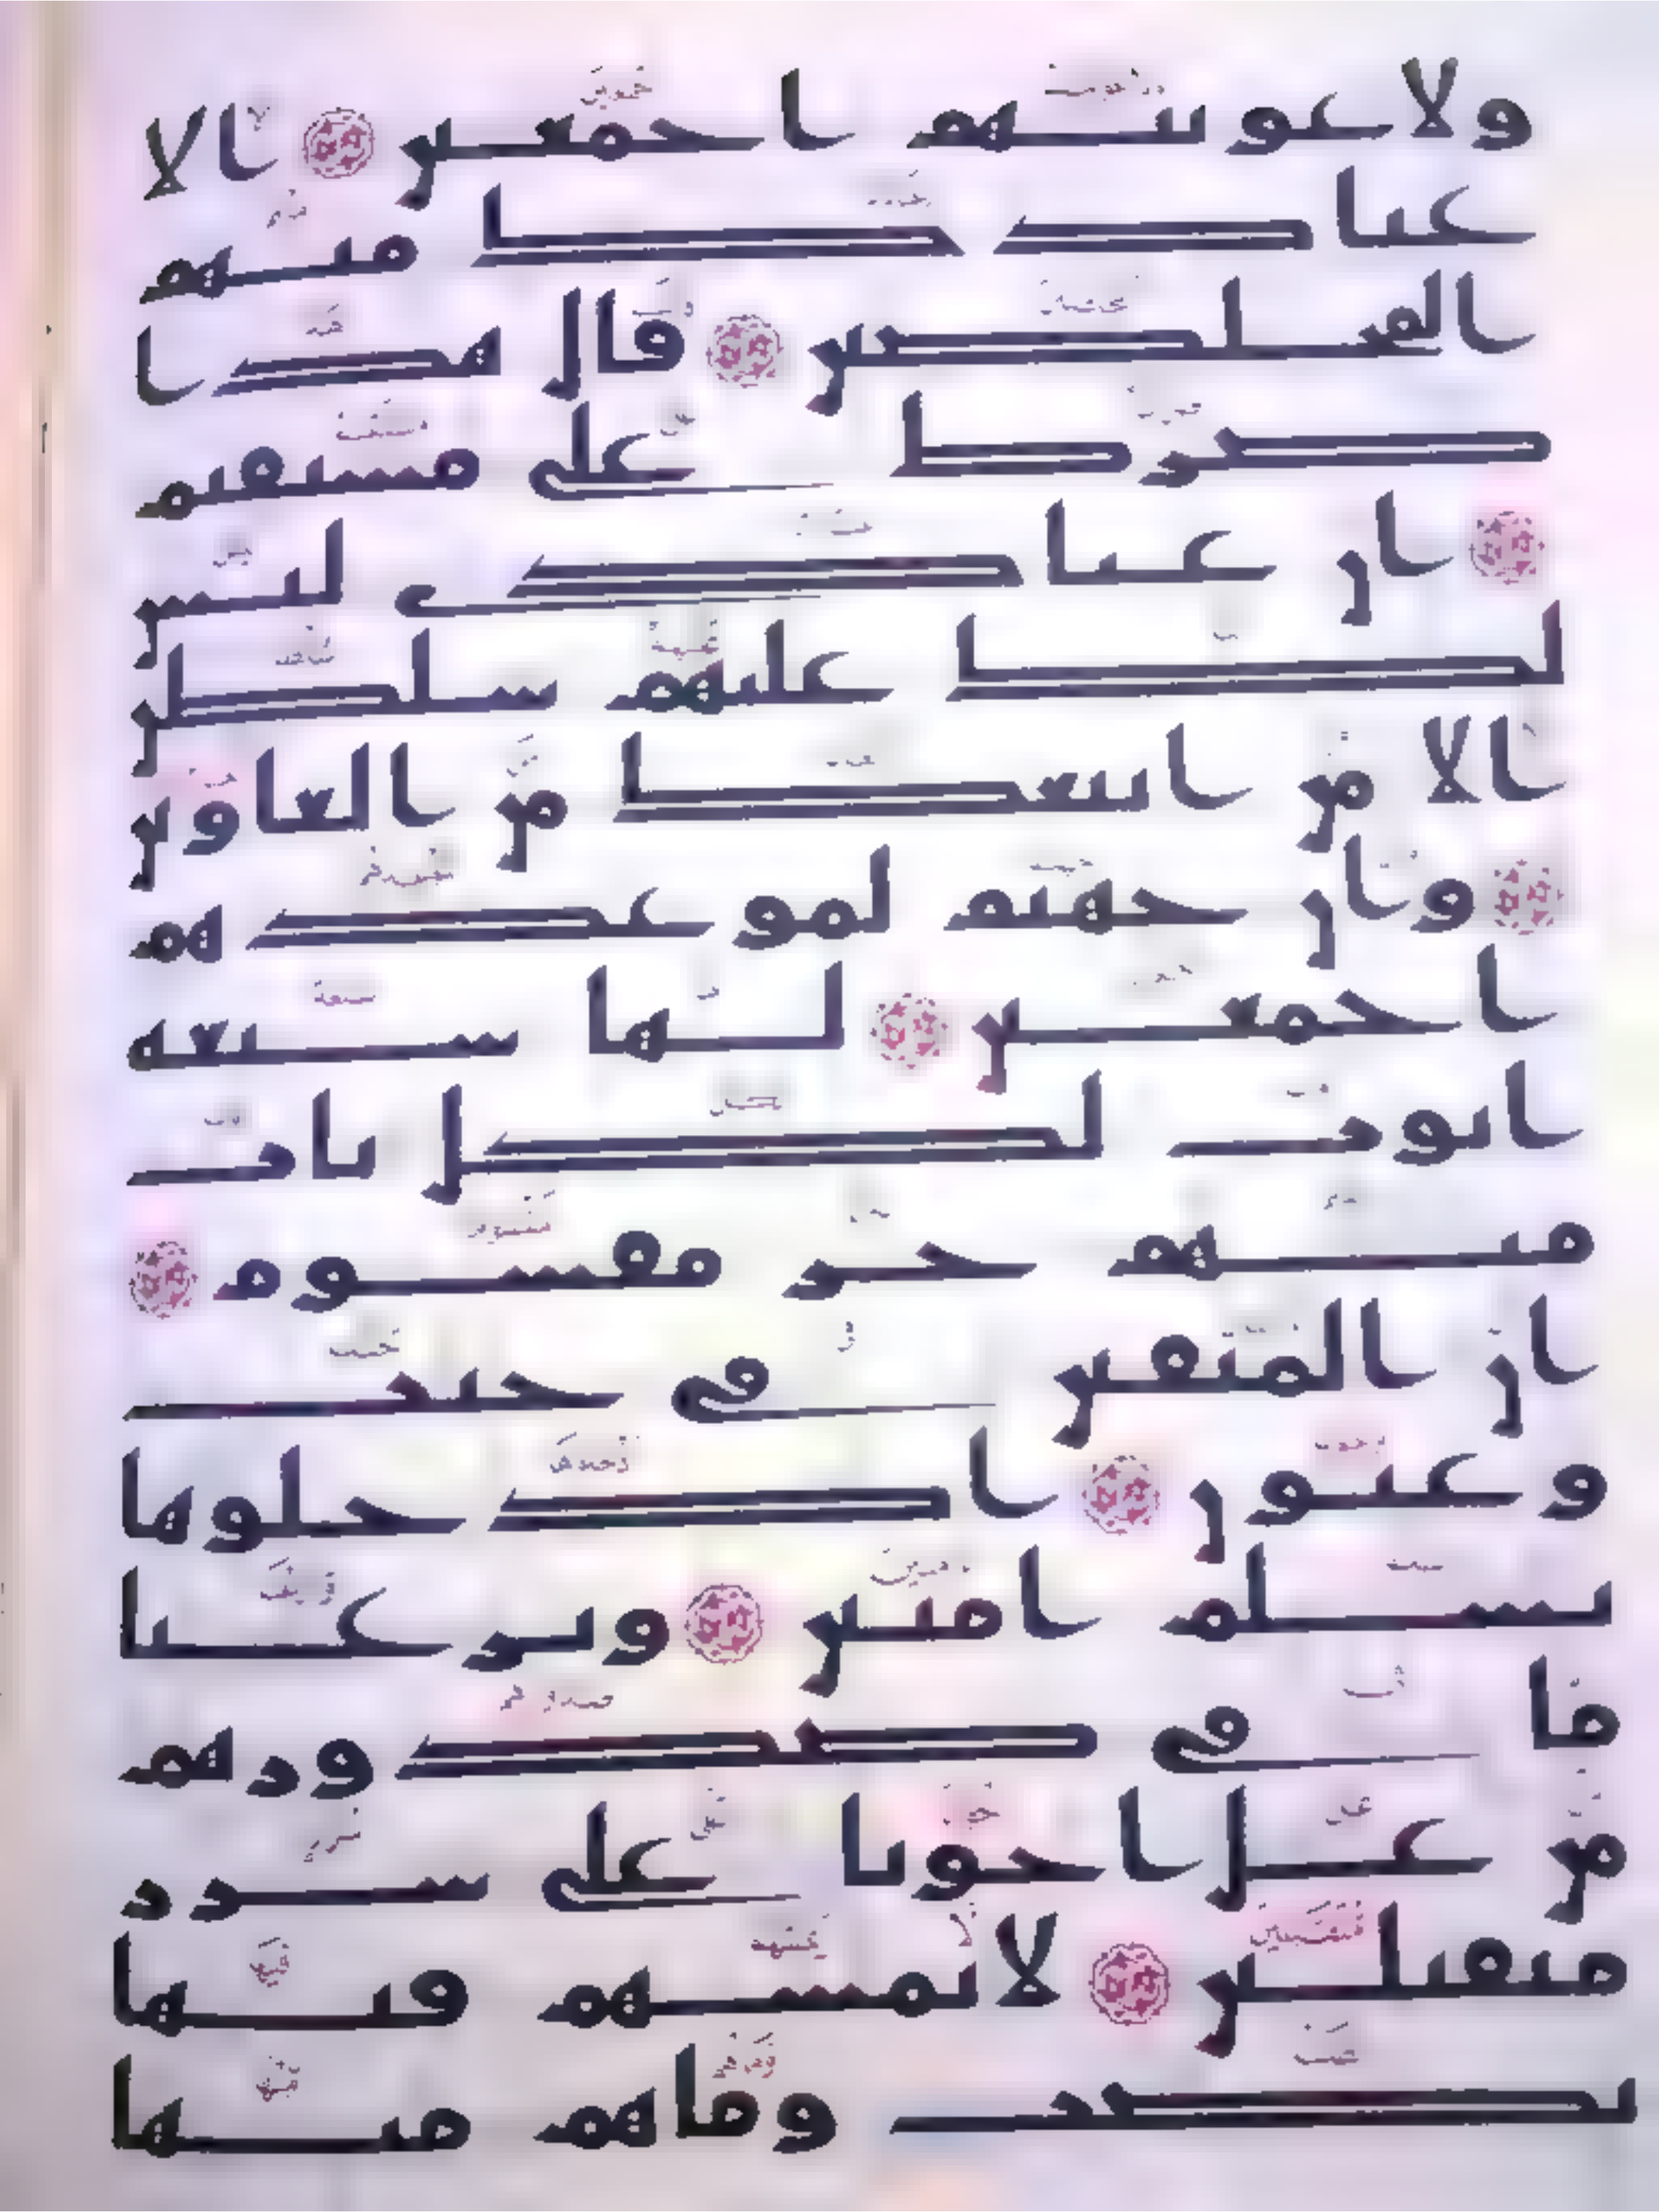 ولاغوينهم اجمعين الا
عبادك منهم
المخلصين قال هذا
صرط على مستقيم
ان عبادى ليس
لك عليهم سلطن
الا من اتبعك من الغاوين
وان جهنم لموعدهم
اجمعين لها سبعة
ابوب لكل باب
منهم جز مقسوم
ان المتقين فى جنت
وعيون ادخلوها
بسلم امنين ونزعنا
ما فى صدورهم
من غل اخونا على سرر
متقبلين لا يمسهم فيها
نصب وما هم منها